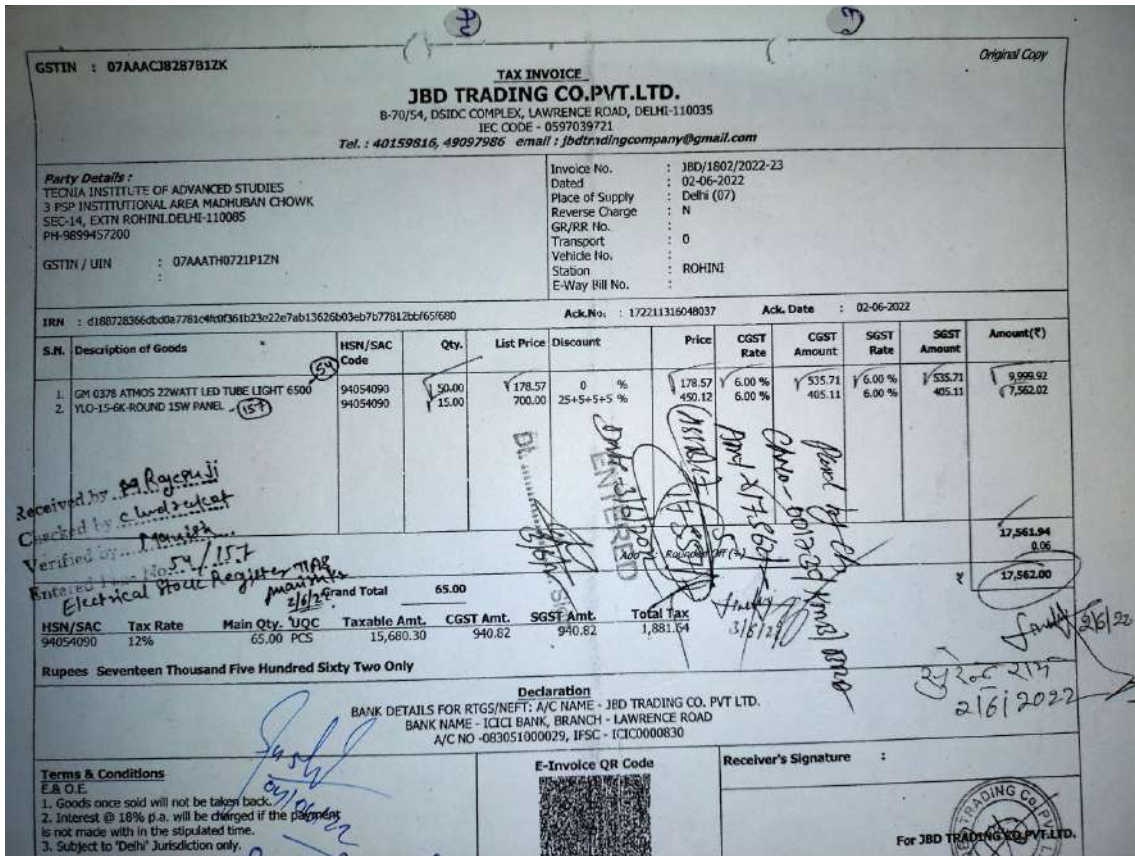 Original Copy
GSTIN : 07AAACJ8287B1ZK
TAX INVOICE
JBD TRADING CO.PVT.LTD.
B-70/54, DSIDC COMPLEX, LAWRENCE ROAD, DELHI-110035
IEC CODE - 0597039721
Tel. : 40159816, 49097986 email : jbdtradingcompany@gmail.com
Party Details :
TECNIA INSTITUTE OF ADVANCED STUDIES
3 PSP INSTITUTIONAL AREA MADHUBAN CHOWK
SEC-14, EXTN ROHINI.DELHI-110085
PH-9899457200
GSTIN / UIN : 07AAATH0721P1ZN
:
Invoice No. : JBD/1802/2022-23
Dated : 02-06-2022
Place of Supply : Delhi (07)
Reverse Charge : N
GR/RR No. :
Transport : 0
Vehicle No. :
Station : ROHINI
E-Way Bill No. :
IRN : d188728366dbd0a7781c4fc0f361b23e22e7ab13626b03eb7b77812bbf65f680 Ack.No. : 172211316048037 Ack. Date : 02-06-2022
S.N. Description of Goods HSN/SAC Code Qty. List Price Discount Price CGST Rate CGST Amount SGST Rate SGST Amount Amount(₹)
54
1. GM 0378 ATMOS 22WATT LED TUBE LIGHT 6500 94054090 50.00 178.57 0 % 178.57 6.00 % 535.71 6.00 % 535.71 9,999.92
2. YLO-15-6K-ROUND 15W PANEL 157 94054090 15.00 700.00 25+5+5+5 % 450.12 6.00 % 405.11 6.00 % 405.11 7,562.02
Received by
Checked by
Verified by Manish
54/157
Electrical Stock Register
2/6/22
ENTERED
17,561.94
Add : Rounded Off (+) 0.06
₹ 17,562.00
Grand Total 65.00
HSN/SAC Tax Rate Main Qty. UQC Taxable Amt. CGST Amt. SGST Amt. Total Tax
94054090 12% 65.00 PCS 15,680.30 940.82 940.82 1,881.64
3/6/22
2/6/22
सुरेन्द्र राम
2/6/2022
Rupees Seventeen Thousand Five Hundred Sixty Two Only
Declaration
BANK DETAILS FOR RTGS/NEFT: A/C NAME - JBD TRADING CO. PVT LTD.
BANK NAME - ICICI BANK, BRANCH - LAWRENCE ROAD
A/C NO -083051000029, IFSC - ICIC0000830
Terms & Conditions
E.& O.E.
1. Goods once sold will not be taken back.
2. Interest @ 18% p.a. will be charged if the payment
is not made with in the stipulated time.
3. Subject to 'Delhi' Jurisdiction only.
E-Invoice QR Code
Receiver's Signature :
For JBD TRADING CO.PVT.LTD.